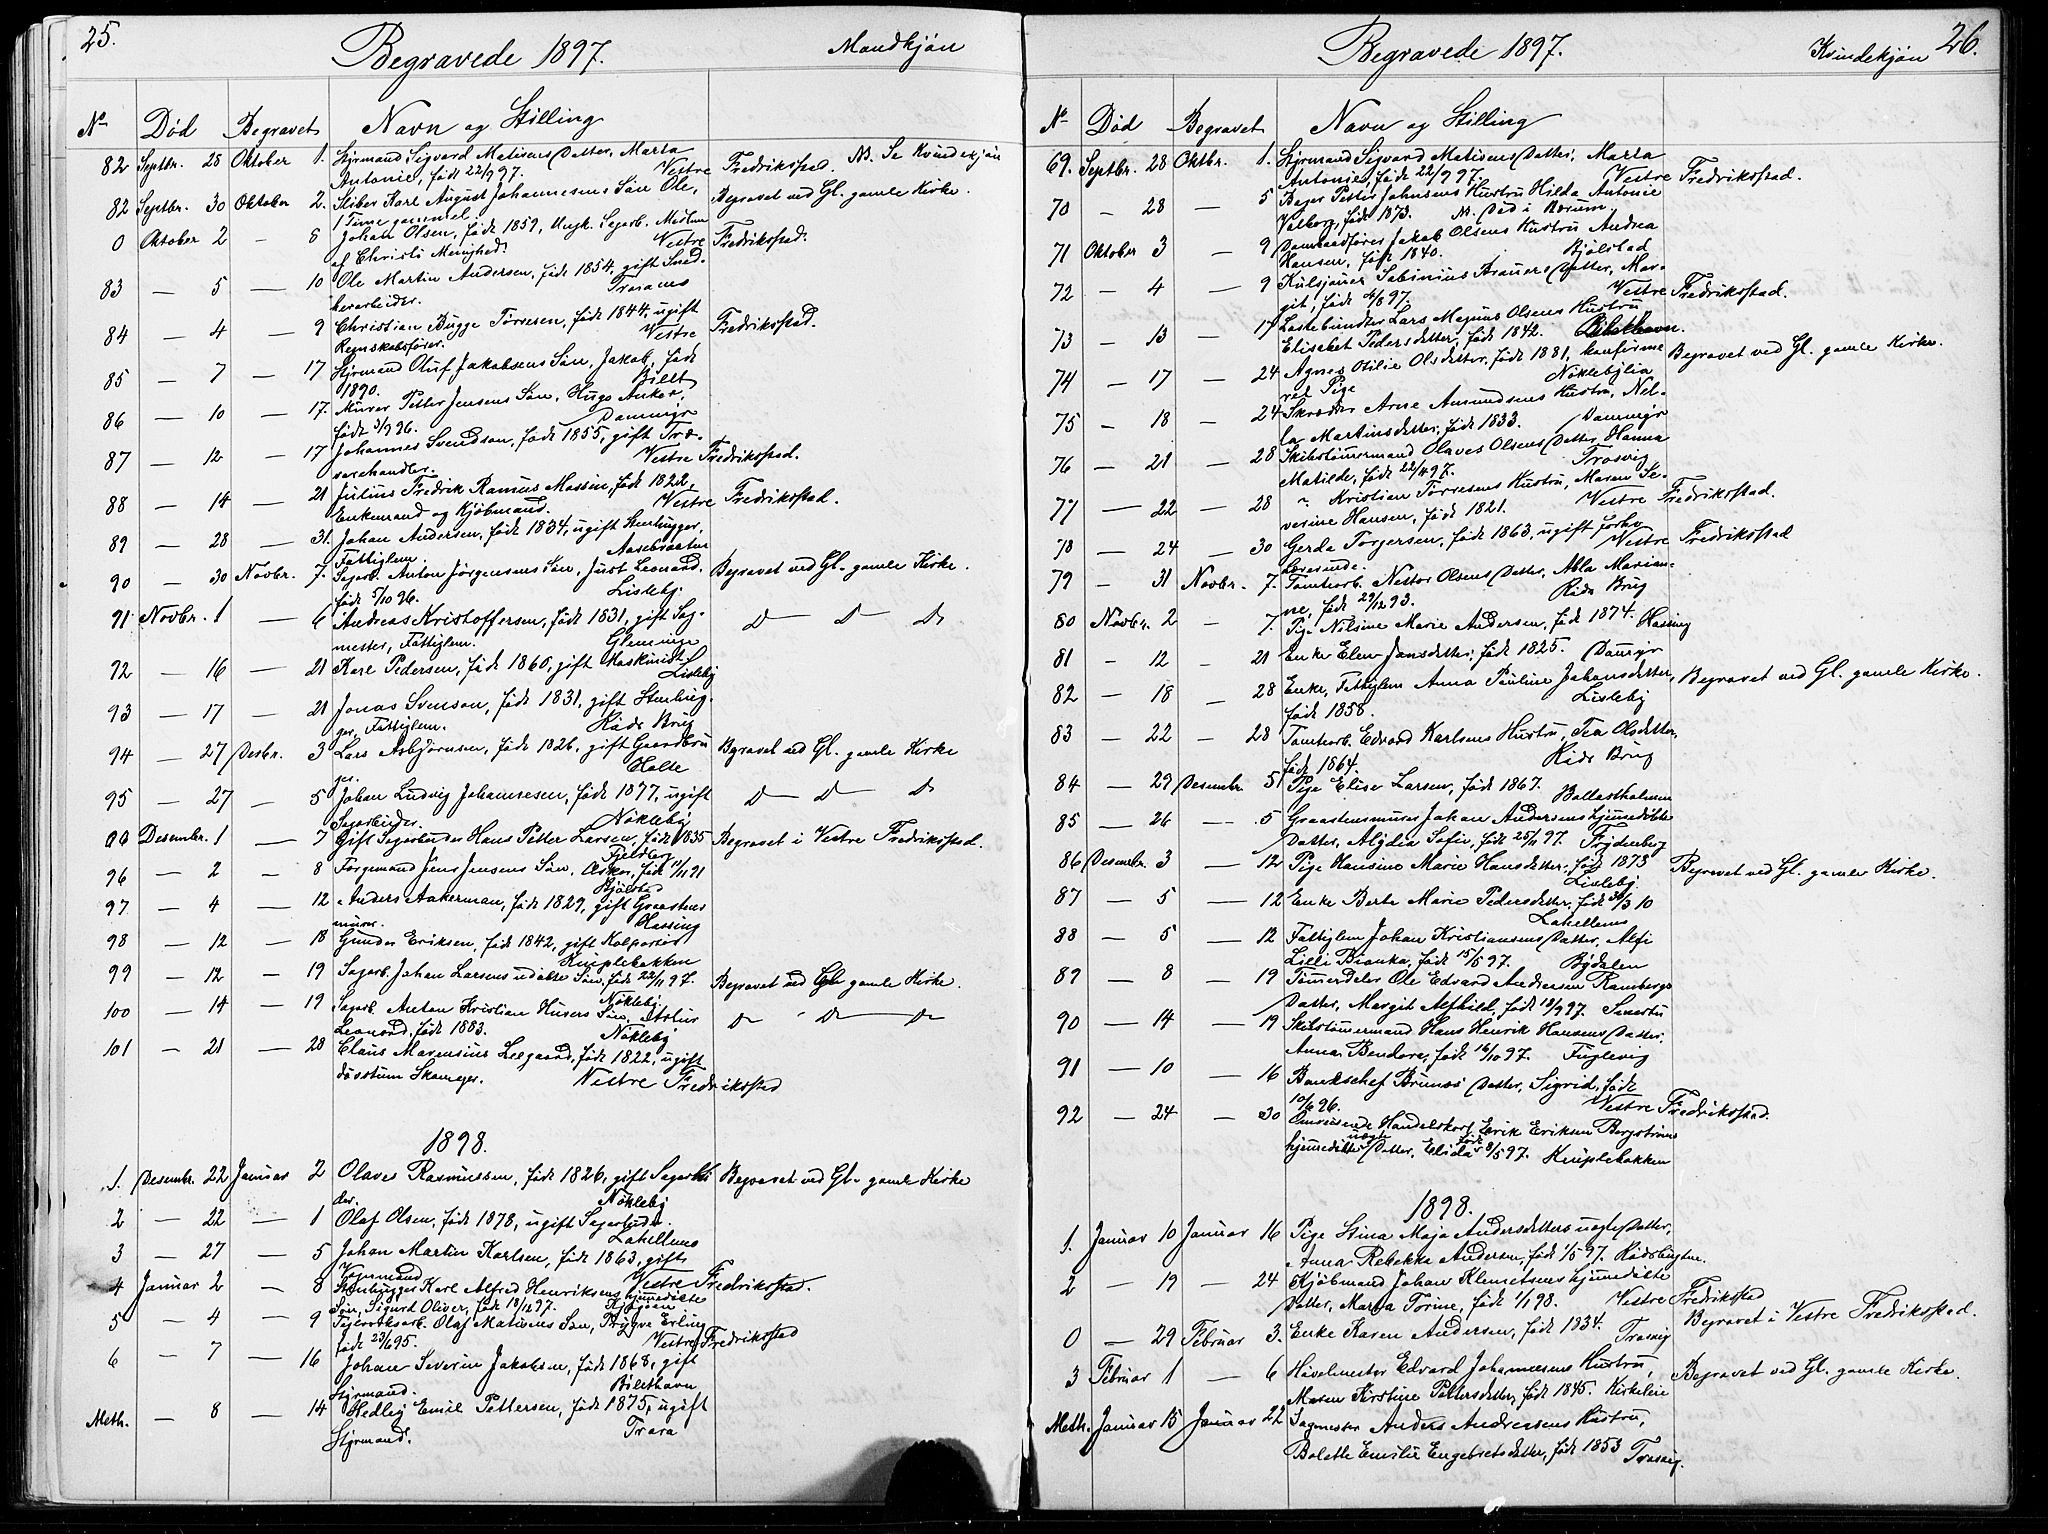 25.
Begravede 1897.
Mandkjön
No Död Begravet Navn og Stilling
82 Septbr. 28 Oktober 1. Styrmand Sigvard Mativens Datter, Marta
Antonie, født 22/9 97. Vestre Fredriksstad. NB. Se Kvindekjön
82 Septbr. 30 Oktober 2. Sliber Karl August Johannesens Sön Ole,
1 Time gammel. Begravet ved Gl. gamle Kirke.
0 Oktober 2 - 8 Johan Olsen, født 1859, Ungk. Sagarb. Medlem
af Christi Menighed. Vestre Fredriksstad.
83 - 5 - 10 Ole Martin Andersen, født 1854, gift Sned-
kerarbeider. Traranes
84 - 4 - 9 Christian Bugge Torresen, født 1844, ugift
Regnskabsfører. Vestre Fredriksstad.
85 - 7 - 17 Styrmand Oluf Jakobsens Sön, Jakob, født
1890. Bildt
86 - 10 - 17. Murer Petter Jensens Sön, Hugo Anker,
født 3/9 96. Dammyr
87 - 12 - 17 Johannes Svendsen, født 1855, gift Træ-
varehandler. Vestre Fredriksstad.
88 - 14 - 21 Julius Fredrik Ramus Massin, født 1822,
Enkemand og Kjøbmand. Vestre Fredriksstad.
89 - 28 - 31. Johan Andersen, født 1834, ugift Stenhugger,
Fattiglem. Aasebraaten
90 - 30 Novbr. 7. Sagarb. Anton Jörgensens Sön, Just Leonard,
født 5/10 96. Lisleby. Begravet ved Gl. gamle Kirke.
91 Novbr. 1 - 6 Andreas Kristoffersen, født 1831, gift Sag-
mester, Fattiglem. Glemmen D - D - D
72 - 16 - 21 Karl Pedersen, født 1860, gift Maskinist
Lisleby
93 - 17 - 21 Jonas Svenson, født 1831, gift Stenhug-
ger, Fattiglem. Kåds Brug
94 - 27 Desbr. 3 Lars Asbjørnsen, født 1826, gift Gaardbru
ger. Holte Begravet ved Gl. gamle Kirke
95 - 27 - 5 Johan Ludvig Johannesen, født 1877, ugift
Sagarbeider. Nökleby D - D - D
00 Desembr. 1 - 7 Gift Sagarbeider Hans Petter Larsen, født 1835
Fjeldberg Begravet i Vestre Fredriksstad.
96 - 2 - 8 Formand Jens Jensens Sön, Oskar, født 11/11 91
Bjölstad
97 - 4 - 12 Anders Aakerman, født 1829, gift Graastens
murer. Hassing
98 - 12 - 18 Gunder Eriksen, født 1842, gift Kolportør
Kniplebakken
99 - 12 - 19 Sagarb. Johan Larsens udøbte Sön, født 22/11 97.
Nökleby Begravet ved Gl. gamle Kirke.
100 - 14 - 19 Sagarb. Anton Kristian Husers Sön, Artur
Leonard, født 1883. Nökleby D - D - D
101 - 21 - 28 Claus Marensius Leegaard, født 1822, ugift
døvstum Skomager. Vestre Fredriksstad
1898.
1. Desembr. 22 Januar 2 Olaves Rasmussen, født 1826, gift Sagarbei
der. Nökleby Begravet ved Gl. gamle Kirke
2 - 22 - 1 Olaf Olsen, født 1878, ugift Sagarbeider.
Lahellens
3 - 27 - 5 Johan Martin Karlsen, født 1863, gift
Vognmand Vestre Fredriksstad.
4 Januar 2 - 8 Stenhugger Karl Alfred Henriksens hjemmedöbte
Sön, Sigurd Oliver, født 18/12 97.
5 - 4 - 9 Fejerværksarb. Olaf Mativens Sön, Trygve Erling
født 23/1 95. Vestre Fredriksstad
6 - 7 - 16 Johan Severin Jakobsen, født 1868, gift
Styrmand. Bildthavn
Meth. - 8 - 14 Hedley Emil Pettersen, født 1875, ugift
Styrmand. Trara
Begravede 1897.
Kvindekjön 26.
No Död Begravet Navn og Stilling
69. Septbr. 28 Oktbr. 1. Styrmand Sigvard Mativens Datter, Marta
Antonie, født 22/9 97. Vestre Fredriksstad.
70 - 28 - 5 Bager Petter Johnsens Hustru Hilda Antonie
Valborg, født 1873. NB. Død i Bærum.
71 Oktober 3 - 9 Damskabsfører Jakob Olsens Hustru Andrea
Hansen, født 1840. Bjölstad
72 - 4 - 9 Kulsjouer Sabinius Brauers Datter, Mar-
git, født 4/8 97. Vestre Fredriksstad.
73 - 13 - 17 Lastebundter Lars Magnus Olsens Hustru
Elisabet Pedersdatter, født 1842. Bildthavn.
74 - 17 - 24 Agnes Otilie Olsdatter, født 1881, konfirme
ret Pige Nöklebylia Begravet ved Gl. gamle Kirke.
75 - 18 - 24 Skrædder Arne Amundsens Hustru, Nel-
la Martinsdatter, født 1833. Dammyr
76 - 21 - 28 Skibstömmermand Olaves Olsens Datter, Hanna
Matilde, født 22/4 97. Trosvig
77 - 22 - 28 Kristian Torresens Hustru, Maren Se-
verine Hansen, født 1821. Vestre Fredriksstad.
78 - 24 - 30 Gerda Torgersen, født 1863, ugift forhv.
Lærerinde. Vestre Fredriksstad
79 - 31 Novbr. 7. Tomtearb. Nestor Olsens Datter, Abla Marian-
ne, født 29/12 93. Kåds Brug
80 Novbr. 2 - 7. Pige Nilsine Marie Andersen, født 1874. Hassing
81 - 12 - 21 Enke Elen Jansdatter, født 1825. Damyr
82 - 18 - 28 Enke, Fattiglem Anna Pauline Johansdatter,
født 1858. Lisleby Begravet ved Gl. gamle Kirke.
83 - 22 - 28 Tomtearb. Edvard Karlsens Hustru, Tea Olsdatter,
født 1864. Kåds Brug
84 - 29 Desembr. 5 Pige Elise Larsen, født 1867.
Ballastholmen
85 - 26 - 5 Graastensmurer Johan Andersens hjemmedöbte
Datter, Algdia Sofie, født 25/11 97. Frydenberg
86 Desembr. 3 - 12 Pige Hansine Marie Hansdatter, født 1873
Lisleby. Begravet ved Gl. gamle Kirke.
87 - 5 - 12 Enke Berte Marie Pedersdatter, født 30/3 10
Lahellens
88 - 5 - 12 Fattiglem Johan Kristiansens Datter, Alfi
Lilli Bianka, født 15/5 97. Bydalen
89 - 8 - 19 Tömmerdeler Ole Edvard Andersen Rambergs
Datter, Margit Alfhild, født 18/9 97.
90 - 14 - 19 Skibstömmermand Hans Henrik Hansens Datter,
Anna Bendore, født 16/10 97. Fuglevig
91 - 10 - 16 Bankschef Brunsö Datter, Sigrid, født
10/6 96. Vestre Fredriksstad.
92 - 24 - 30 Omreisende Handelskarl Erik Eriksen Bergströms
hjemmedöbte uægte Datter, Elida født 8/5 97. Kniplebakken
1898.
1. Januar 10 Januar 16 Pige Stina Maja Andersdatters uægte Datter,
Anna Rebekka Andersen, født 1/5 97. Kådsbugten.
2 - 19 - 24 Kjøbmand Johan Klemetsens hjemmedöbte
Datter, Marga Torine, født 1/1 98. Vestre Fredriksstad
0 - 29 Februar 3. Enke Karen Andersen, født 1834. Trosvig Begravet i Vestre Fredriksstad.
3 Februar 1 - 6 Hövelmester Edvard Johannesens Hustru,
Maren Kirstine Pettersdatter, født 1845. Kirkeleie Begravet ved Gl. gamle Kirke.
Meth. Januar 15 Januar 22 Sagmester Anders Andersens Hustru,
Bolette Emilie Engebretsdatter, født 1853 Trosvig.